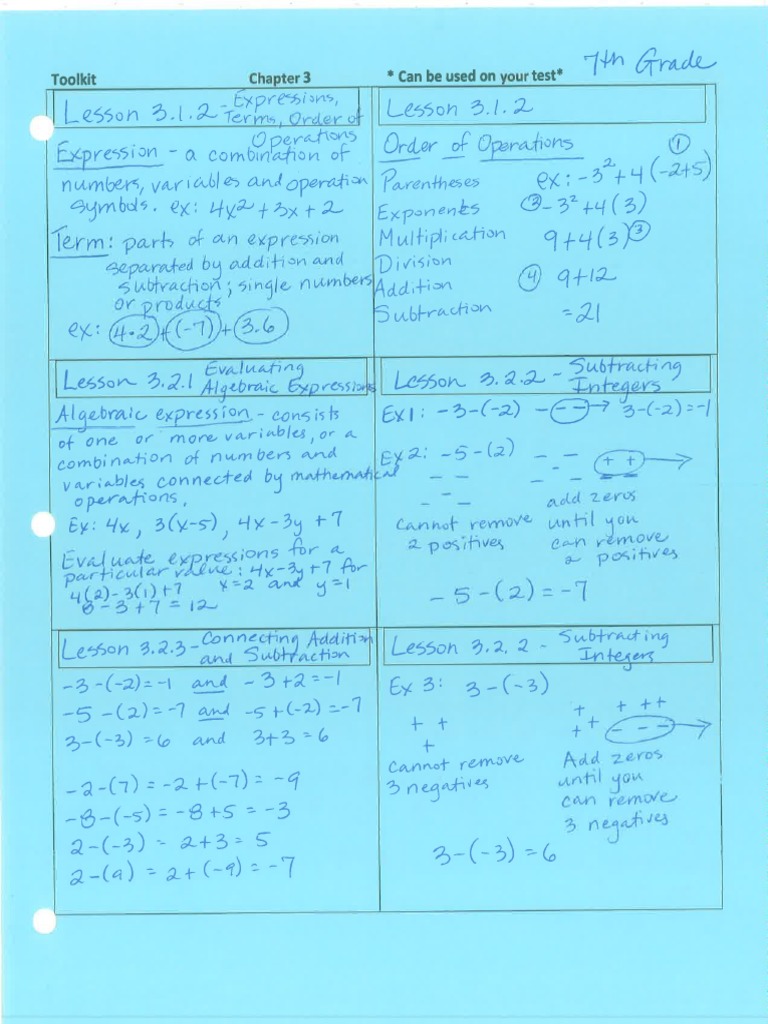 7th Grade
Toolkit Chapter 3 * Can be used on your test*
Lesson 3.1.2 - Expressions,
Terms, Order of
Operations
Expression - a combination of
numbers, variables and operation
symbols. ex: 4x² + 3x + 2
Term: parts of an expression
separated by addition and
subtraction; single numbers
or products
ex: 4·2 + (-7) + 3.6
Lesson 3.1.2
Order of Operations
①
Parentheses ex: -3² + 4(-2+5)
Exponents ② -3² + 4(3)
Multiplication 9+4(3) ③
Division
Addition ④ 9+12
Subtraction = 21
Lesson 3.2.1 Evaluating
Algebraic Expressions
Algebraic expression - consists
of one or more variables, or a
combination of numbers and
variables connected by mathematical
operations.
Ex: 4x, 3(x-5), 4x-3y+7
Evaluate expressions for a
particular value: 4x-3y+7 for
4(2)-3(1)+7 x=2 and y=1
8-3+7=12
Lesson 3.2.2 - Subtracting
Integers
Ex1: -3-(-2) - - - → 3-(-2)=-1
Ex2: -5-(2) - - - + + →
- - - -
-
- -
cannot remove
2 positives
add zeros
until you
can remove
2 positives
-5-(2) = -7
Lesson 3.2.3 - Connecting Addition
and Subtraction
-3-(-2)=-1 and -3+2=-1
-5-(2)=-7 and -5+(-2)=-7
3-(-3)=6 and 3+3=6
-2-(7) = -2+(-7) = -9
-8-(-5) = -8+5 = -3
2-(-3) = 2+3 = 5
2-(9) = 2+(-9) = -7
Lesson 3.2.2 - Subtracting
Integers
Ex 3: 3-(-3)
+ +
+
cannot remove
3 negatives
+ + + +
+ + - - - →
Add zeros
until you
can remove
3 negatives
3-(-3) = 6